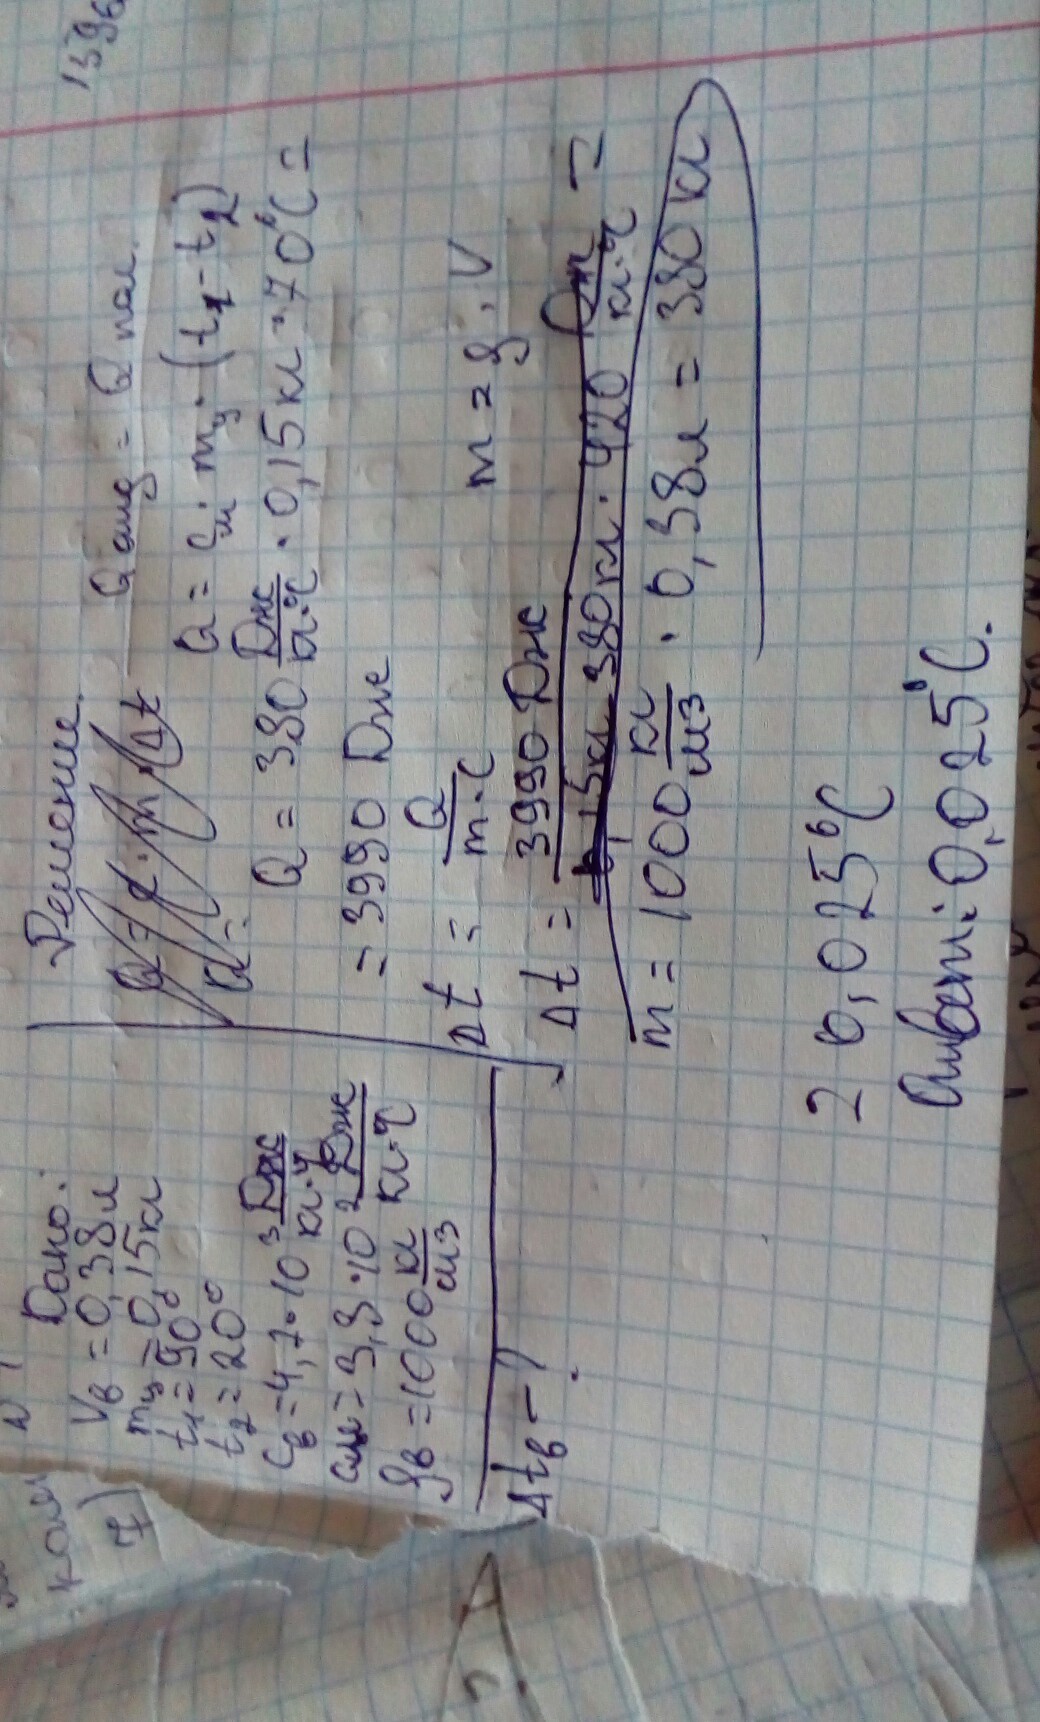 Дано:
Vв = 0,38л
mу = 0,15кг
t1 = 90°
t2 = 20°
Cв = 4,2·10³ Дж/кг·°C
См = 3,8·10² Дж/кг·°C
ρв = 1000 кг/м3
Δtв - ?
Решение.
Q отд = Q пол.
Q = Cм · mу · (t1 - t2)
Q = 380 Дж/кг·°C · 0,15кг · 70°C =
= 3990 Дж
Δt = Q/m·C
m = ρ · V
Δt = 3990 Дж / 380кг · 420 Дж/кг·°C =
m = 1000 кг/м3 · 0,38л = 380 кг
= 0,025°C
Ответ: 0,025°C.